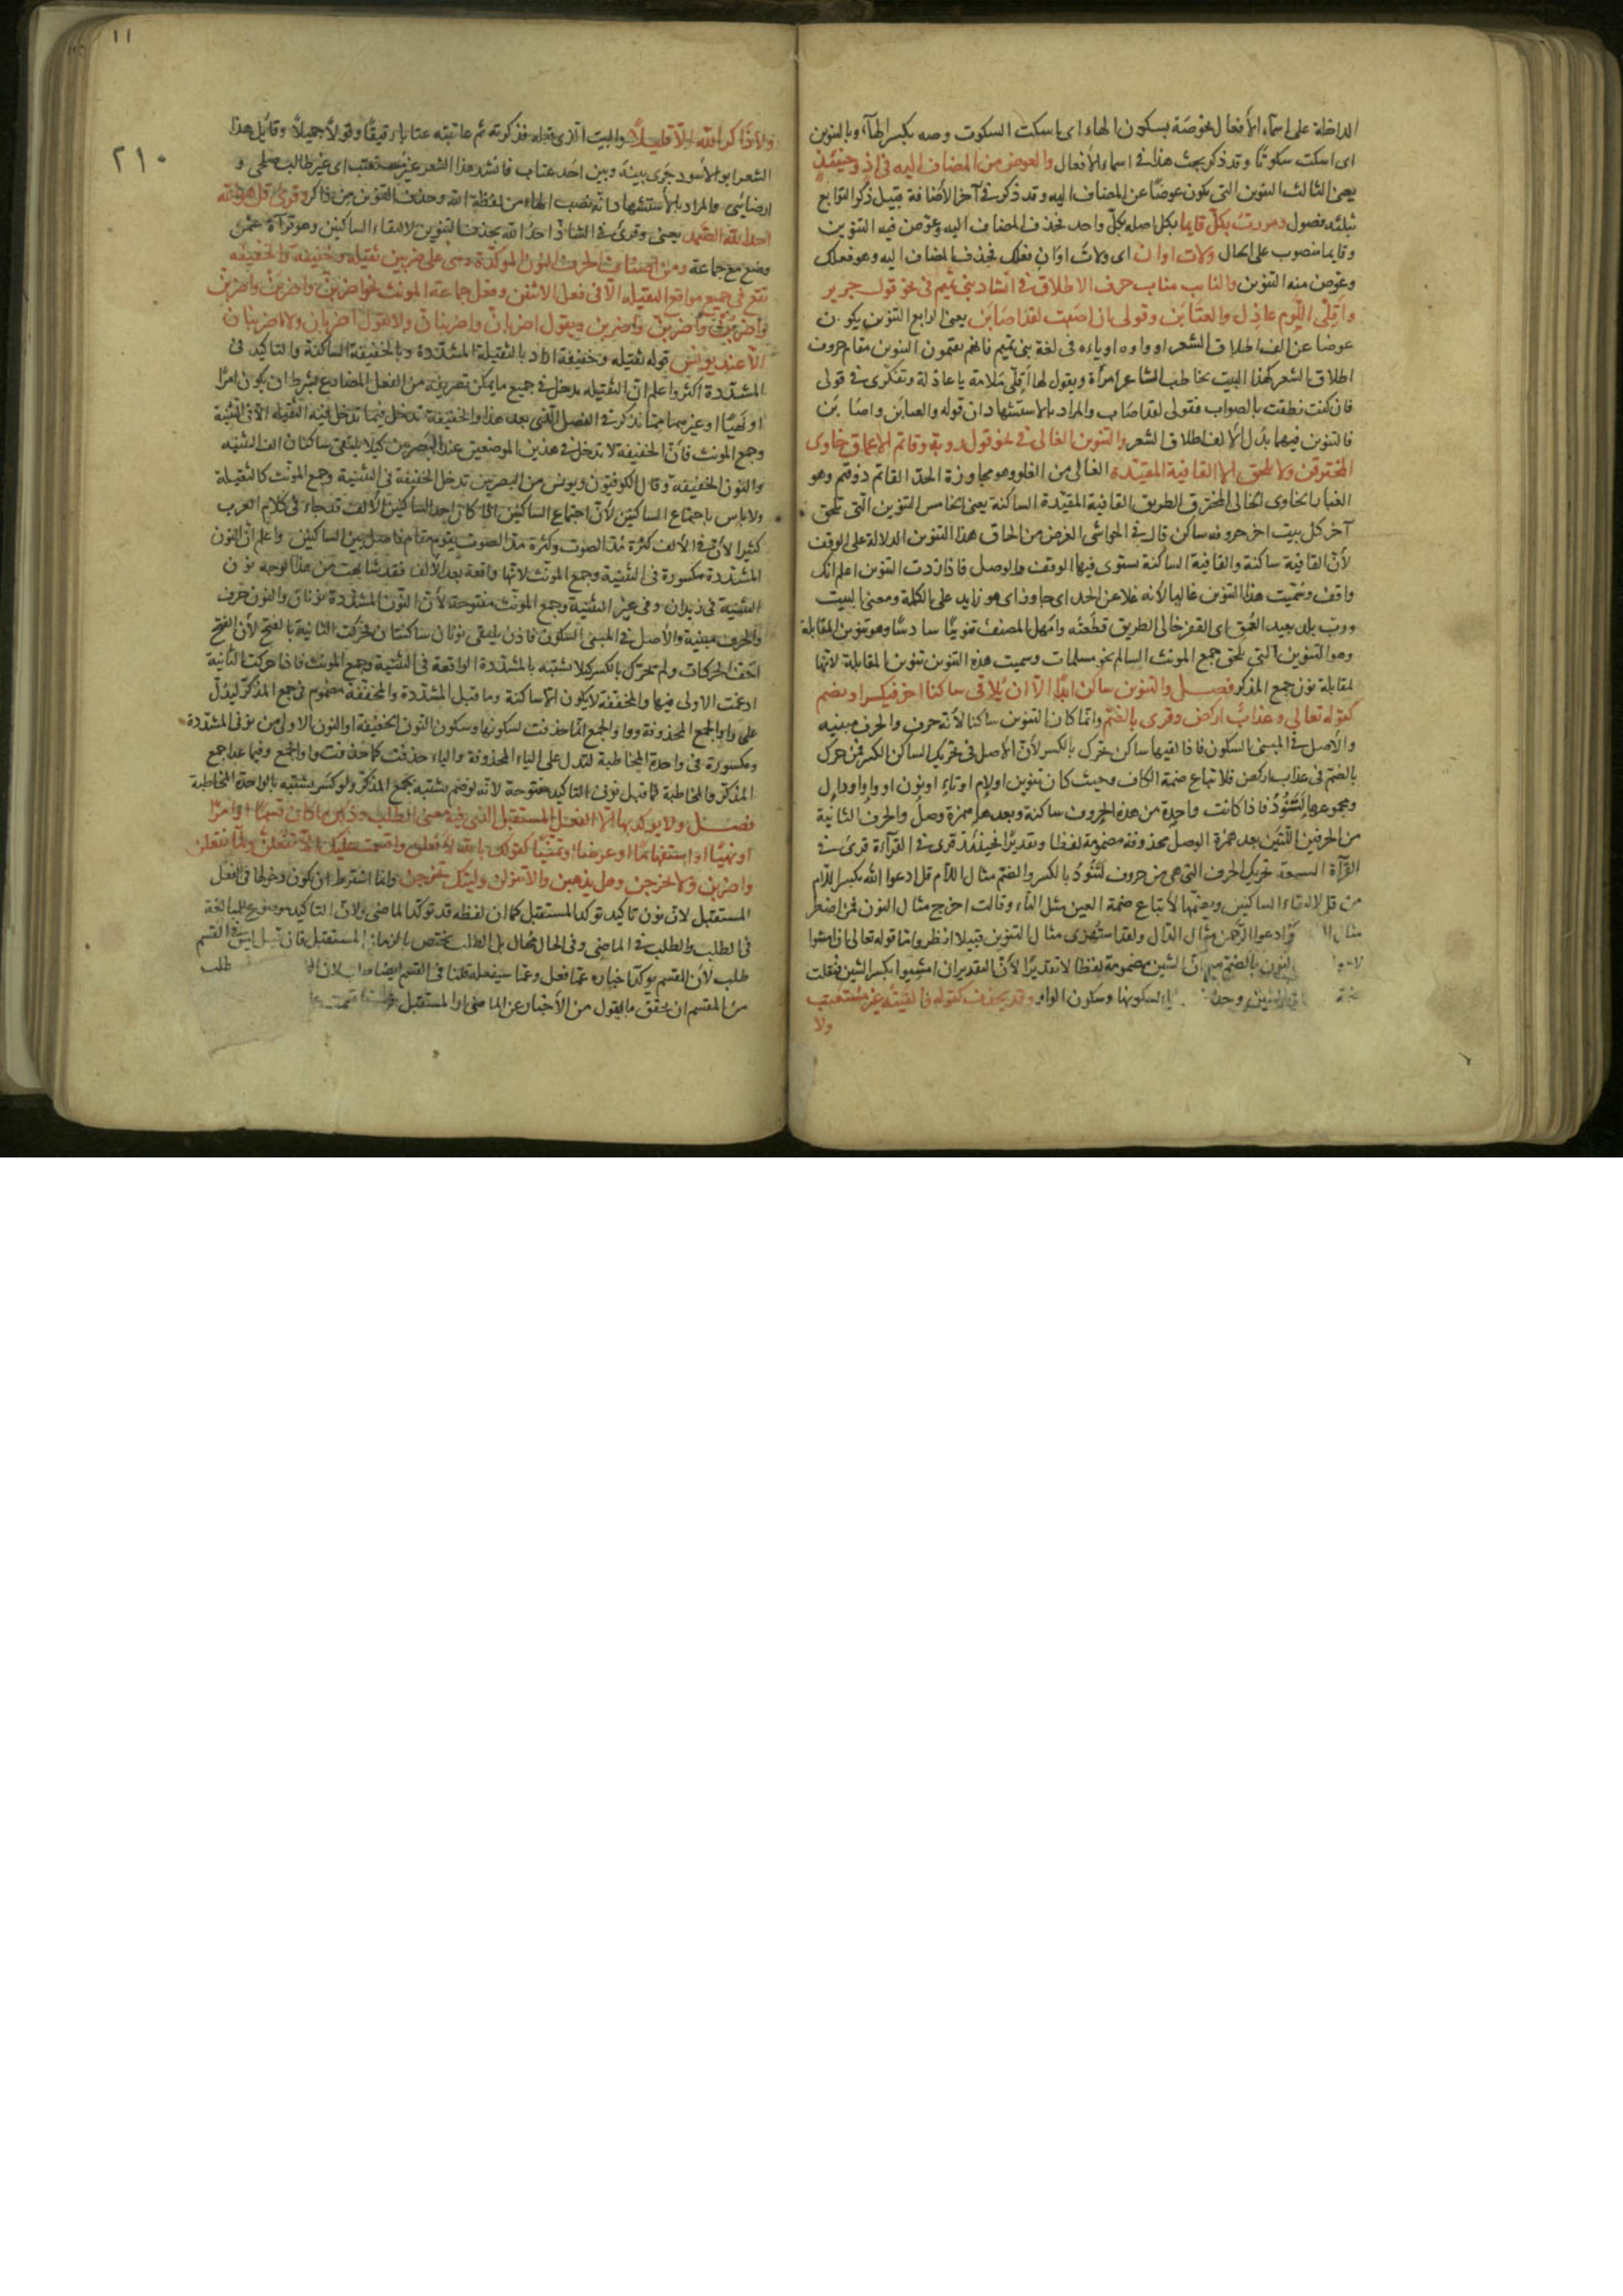 الداخلة على اسماء الأفعال نحو صَهْ بسكون الهاء اى اسكت السكوت وصه بكسر الهاء وبالتنوين
اى اسكت سكوتًا وقد ذكر بحث هذا فى اسماء الأفعال والعوض من المضاف اليه فى اذ وحينئذ
يعنى الثالث التنوين التى يكون عوضًا عن المضاف اليه وقد ذكر فى آخر الأضافة قبيل ذكر التوابع
بثلثه فصول ومررت بكلّ قايما بكل اصله بكلّ واحد فحذف المضاف اليه وعوّض فيه التنوين
وقايما منصوب على الحال ولات اوان اى ولات اوَانِ فعلك فحذف المضاف اليه وهو فعلك
وعوّض منه التنوين والنايب مناب حرف الاطلاق فى انشاد بنى تميم فى نحو قول جرير
واَقِلّى اللّوم عاذل والعتَابَن وقولى ان اصَبت لقد اصَابَن يعنى الرابع التنوين يكون
عوضا عن الف اطلاق الشعر او واوه او ياءه فى لغة بنى تميم فانهم يقيمون التنوين مقام حروف
اطلاق الشعر كهذا البيت يخاطب الشاعر امرأة ويقول لها اَقِلّى مَلامة يا عاذلة وتفكّرى فى قولى
فان كنت نطقت بالصواب فقولى لقد اصَاب والمراد بالاستشهاد ان قوله والعتابَن واصَابَن
فالتنوين فيهما بدل الألف لاطلاق الشعر والتنوين الغالى فى نحو قول روبة وقاتم الاعماق خاوى
المخترقن ولا يلحق الا القافية المقيّدة الغالى من الغلو وهو مجاوزة الحد القاتم ذو قتم وهو
الغبار الخاوى الخالى المخترق الطريق القافية المقيّدة الساكنة يعنى الخامس التنوين الّتى تلحق
آخر كل بيت اخر حروفه ساكن قال فى الحواشى الغرض من الحاق هذا التنوين الدلالة على الوقف
لأنّ القافية ساكنة والقافية الساكنة يستوى فيها الوقف والوصل فاذا زدت التنوين اعلم انك
واقف وسُمّيت هذا التنوين غاليا لأنه غلا عن الحد اى جاوز اى هو زايد على الكلمة ومعنى البيت
وربّ بلد بعيد العُمق اى القعر خالى الطريق قطَعتُه وامهل المصنف تنوينًا سادسًا وهو تنوين المقابلة
وهو التنوين التى تلحق جمع المونث السالم نحو مسلمات وسميت هذه التنوين تنوين المقابلة لانها
لمقابلة نون جمع المذكر فصل والتنوين ساكن ابدًا الّا ان يُلاقى ساكنا اخر فيكسر او يضم
كقوله تعالى وعذابٌ اركض وقرى بالضّم وانّما كان التنوين ساكنا لأنه حرف والحرف مبنيه
والأصل فى المبنىّ السكون فاذا لقيها ساكن يحرّك بالكسر لأنّ الأصل فى تحريك الساكن الكسر فمن حرّك
بالضمّ فى عذاب اركض فلاتباع ضمة الكاف وحيث كان تنوين او لام او تاء او نون او واو او دال
ومجموعها لتنود فاذا كانت واحدة من هذه الحروف ساكنة وبعدها همزة وصل والحرف الثانية
من الحرفين اللتين بعد همزة الوصل محذوفة مضمومة لفظا وتقديرًا فحينئذ قرى فى القرآءة قرى فى
القرآة السبعة تحريك الحرف التى هى من حروف لتنود بالكسر والضّم مثال اللام قل ادعوا الله بكسر اللّام
من قل لالتقاء الساكنين وبضمها لأتباع ضمة العين مثل التاء وقالت اخرج مثال النون فمن اضطر
ادعوا الرّحمن مثال الدّال ولقد استهزى مثال التنوين فتيلا انظر وامّا قوله تعالى ان امشوا
الشين مضمومة لفظا لا تقديرًا لأنّ التقدير ان امشِيوا بكسر الشين فنقلت
الياء لسكونها وسكون الواو وقد يحذف كقوله فالفَيتُه غير مستعتب
ولا
١١
٢١٠
ولا ذاكرَ الله الّا قليلًا والبيت الّذى قبله فذكرته ثم عاتبته عتابا رقيقًا وقولا جميلًا وقايل هذا
الشعر ابو الاسود جَرى بينه وبين احد عتاب فانشد هذا الشعر غير مستعتب اى غير طالب صلحى و
ارضايى والمراد بالاستشهاد انّه نصب الهاء من لفظة الله وحذف التنوين من ذاكر وقرئ قل هو الله
احد الله الصّمد يعنى وقرئ فى الشاذ احدُ الله بحذف التنوين لالتقاء الساكنين وهو قرآءة عمرو
وضع مع جماعة ومن اصناف الحرف النون الموكّدة وهى على ضربين ثقيله وخفيفة والخفيفه
تقع فى جميع مواقع الثقيله الّا فى فعل الاثنين وفعل جماعة المونث نحو اضربنّ واضربُنّ واضربِنّ
واضربَنْ واضربُنْ واضربِنْ ويقول اضربانّ واضربنانّ ولا تقول اضربانْ ولا اضربنانْ
الّا عند يونس قوله ثقيله وخفيفة اراد بالثقيلة المشدّدة وبالخفيفة الساكنة والتاكيد فى
المشدّدة اكثر واعلم انّ الثقيله يدخل فى جميع ما يمكن تصريفه من الفعل المضارع بشرط ان يكون امرًا
او نهيًا او غيرهما مما نذكر فى الفصل الّذى بعد هذا والخفيفة تدخل فيما تدخل فيه الثقيلة الّا فى التثنية
وجمع المونث فانّ الخفيفة لا تدخل فى هذين الموضعين عند البصريين كيلا يلتقى ساكنان الف التثنيه
والنون الخفيفة وقال الكوفيّون ويونس من البصريين تدخل الخفيفة فى التثنية وجمع المونّث كالثقيلة
ولا باس باجتماع الساكنين لأنّ اجتماع الساكنين اذا كان احد الساكنين الألف قد جاء فى كلام العرب
كثيرا لأنّ فى الألف كثرة مدّ الصوت وكثرة مدّ الصوت يقوم مقام فاصل بين الساكنين واعلم انّ النون
المشدّدة مكسورة فى التثنية وجمع المونّث لانّها واقعة بعد الالف فقد شابهت من هذا الوجه نون
التثنية فى زيدان وفى غير التثنية وجمع المونّث مفتوحة لأنّ النّون المشدّدة نونان والنون حرف
والحرف مبنية والأصل فى المبنى السكون فاذن يلتقى نونان ساكنتان فحرّكت الثانية بالفتح لأن الفتح
اخفّ الحركات ولم تحرّك بالكسر كيلا تشتبه بالمشدّدة الواقعة فى التثنية وجمع المونث فاذا حركت الثانية
ادغمت الاولى فيها والمخففة لا يكون الّا ساكنة وما قبل المشدّدة والمخففة مضموم فى جمع المذكّر ليدلّ
على واو الجمع المحذوفة وواو الجمع انّما حذفت لسكونها وسكون النون الخفيفة او النون الاولى من نونى المشدّدة
ومكسورة فى واحدة المخاطبة لتدل على الياء المحذوفة والياء حذفت كما حذفت واو الجمع وفيما عدا جمع
المذكّر والمخاطبة ما قبل نونى التاكيد مفتوحة لأنه لو ضم يشتبه بجمع المذكّر ولو كسر يشتبه بالواحدة المخاطبة
فصل ولا يوكد بها الّا الفعل المستقبل الذى فيه معنى الطلب وذلك ما كان قسمًا او امرًا
او نهيًا او استفهامًا او عرضا او تمنّيًا كقولك بالله لأفعلن واقسمت عليك الّا تفعلنّ ولمّا تفعلن
واضربن ولا تخرجن وهل يذهبن والا تنزلن وليتك تخرجن وانما اشترط ان يكون دخولها فى الفعل
المستقبل لانّ نون تاكيد توكد المستقبل كما ان لفظه قد توكّد الماضى ولانّ التاكيد موضوع للمبالغة
فى الطلب والطلب فى الماضى وفى الحال محال بل الطلب يختص بالزمان المستقبل فان قيل ليس فى القسم
طلب لأن المقسم يوكّد اخباره عمّا فعل وعمّا سيفعله قلنا فى القسم ايضا طلب لان
من المقسم ان يحقّق ما يقول من الأخبار عن الماضى او المستقبل